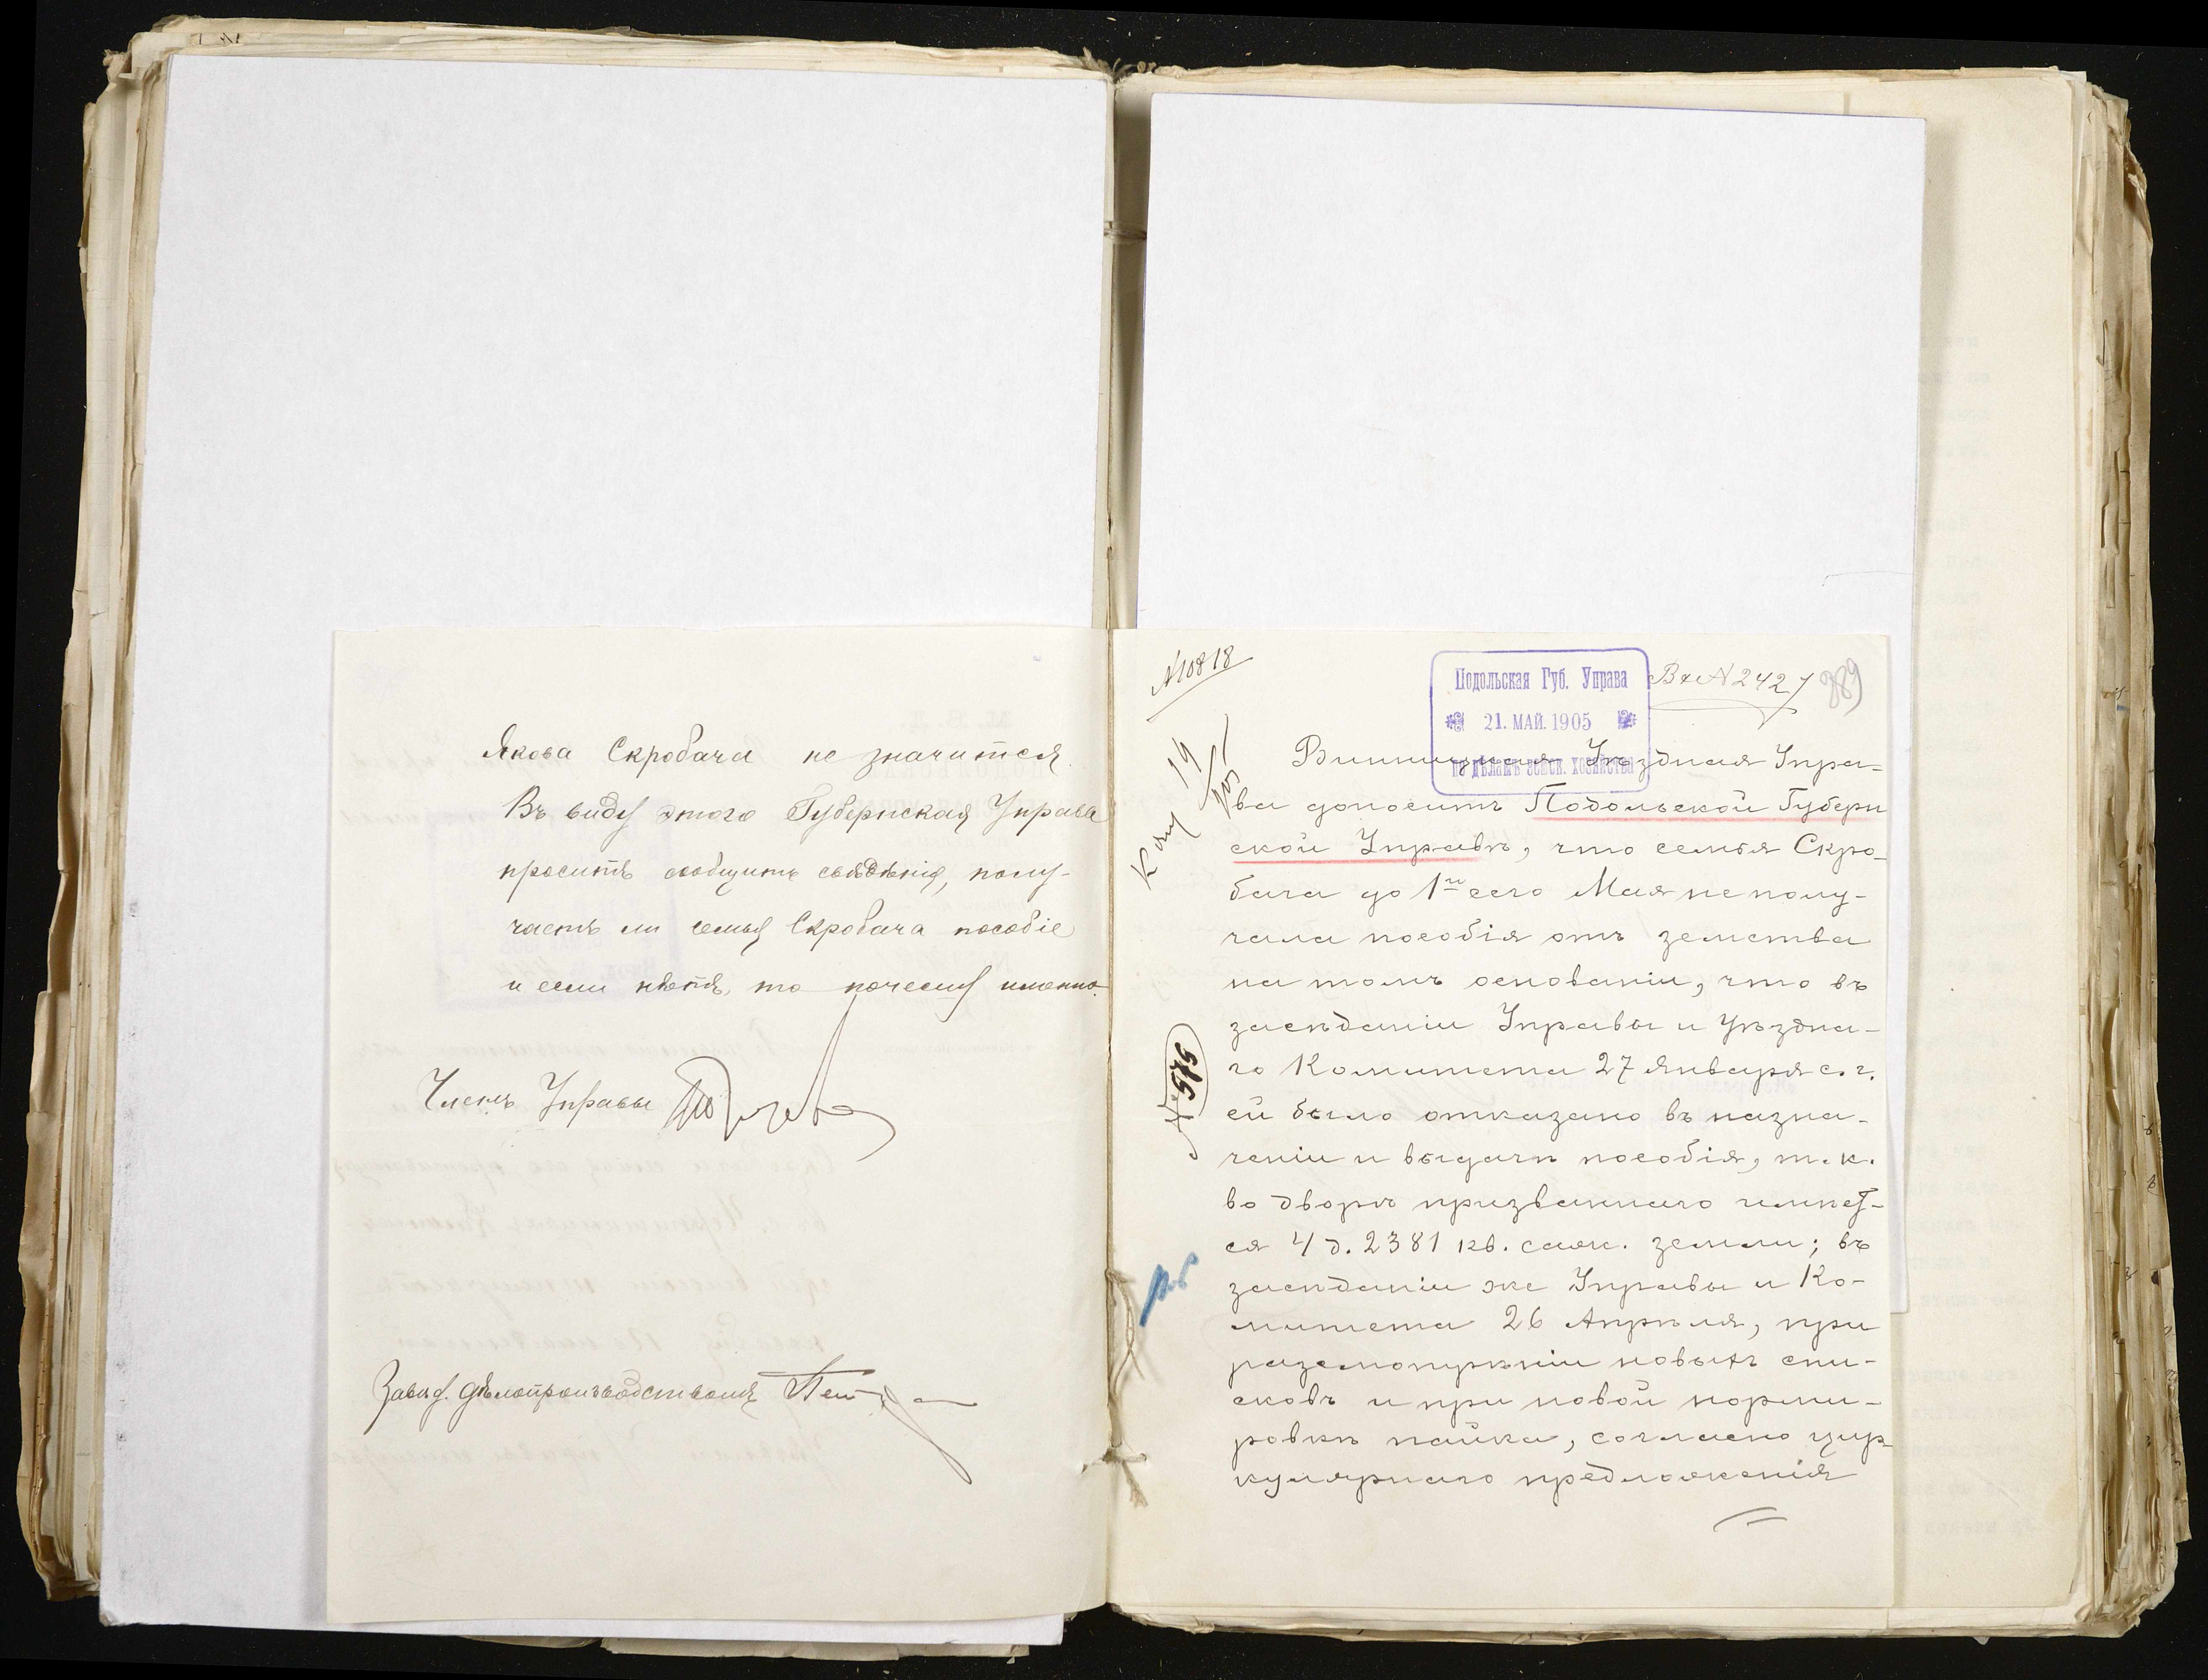 Якова Скробача не значится.
Въ виду этого Губернская Управа
проситъ сообщить свѣдѣнія, полу-
чаетъ ли семья Скробача пособіе
и если нѣтъ, то почему именно.
Членъ Управы
Завѣд. дѣлопроизводствомъ
№10818
Подольская Губ. Управа
21. МАЙ. 1905
по дѣламъ земск. хозяйства
Вх №2427
389
Винницкая Уѣздная Упра-
ва доноситъ Подольской Губерн
ской Управѣ, что семья Скро-
бача до 1го сего Мая не полу-
чала пособія отъ земства
на томъ основаніи, что въ
засѣданіи Управы и Уѣздна-
го Комитета 27 Января с. г.
ей было отказано въ назна-
ченіи и выдачѣ пособія, т. к.
во дворѣ призваннаго имѣет-
ся 4 д. 2381 кв. саж. земли; въ
засѣданіи же Управы и Ко-
митета 26 Апрѣля, при
разсмотрѣніи новыхъ спи-
сковъ и при новой норми-
ровкѣ пайка, согласно цир-
кулярнаго предложенія